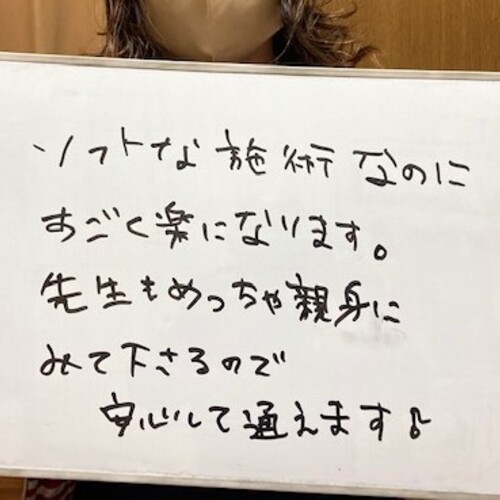 ソフトな施術なのに
すごく楽になります。
先生もめっちゃ親身に
みて下さるので
安心して通えます♪